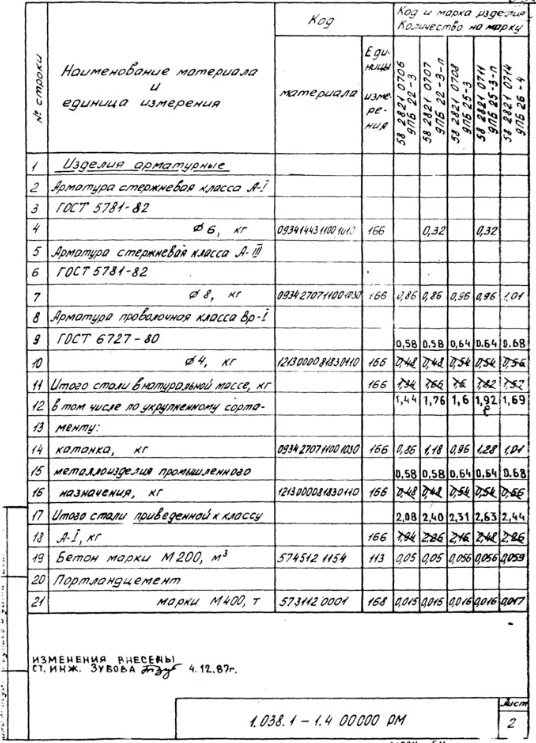 № строки
Наименование материала
и
единица измерения
Код
материала
Еди-
ницы
изме-
ре-
ния
Код и марка изделия
Количество на марку
58 2821 0706
9ПБ 22-3
58 2821 0707
9ПБ 22-3-п
58 2821 0708
9ПБ 25-3
58 2821 0711
9ПБ 25-3-п
58 2821 0714
9ПБ 26-4
1 Изделия арматурные
2 Арматура стержневая класса А-I
3 ГОСТ 5781-82
4 ø6, кг 166 0,32 0,32
5 Арматура стержневая класса А-III
6 ГОСТ 5781-82
7 ø8, кг 166 0,86 0,86 0,96 0,96 1,01
8 Арматура проволочная класса Вр-I
9 ГОСТ 6727-80 0,58 0,58 0,64 0,64 0.68
10 ø4, кг 166 0,48 0,48 0,54 0,54 0,56
11 Итого стали в натуральной массе, кг 166
12 в том числе по укрупненному сорта- 1,44 1,76 1,6 1,92 1,69
13 менту:
14 катанка, кг 166 0,86 1,18 0,96 1,28 1,01
15 металлоизделия промышленного 0,58 0,58 0,64 0,64 0.68
16 назначения, кг 166 0,48 0,48 0,54 0,54 0,56
17 Итого стали приведенной к классу 2,08 2,40 2,31 2,63 2,44
18 А-I, кг 166
19 Бетон марки М200, м³ 574512 1154 113 0,05 0,05 0,056 0,056 0,059
20 Портландцемент
21 марки М400, т 573112 0001 168 0,015 0,015 0,016 0,016 0,017
ИЗМЕНЕНИЯ ВНЕСЕНЫ
СТ. ИНЖ. ЗУБОВА 4.12.87г.
1.038.1-1.4 00000 РМ
Лист
2